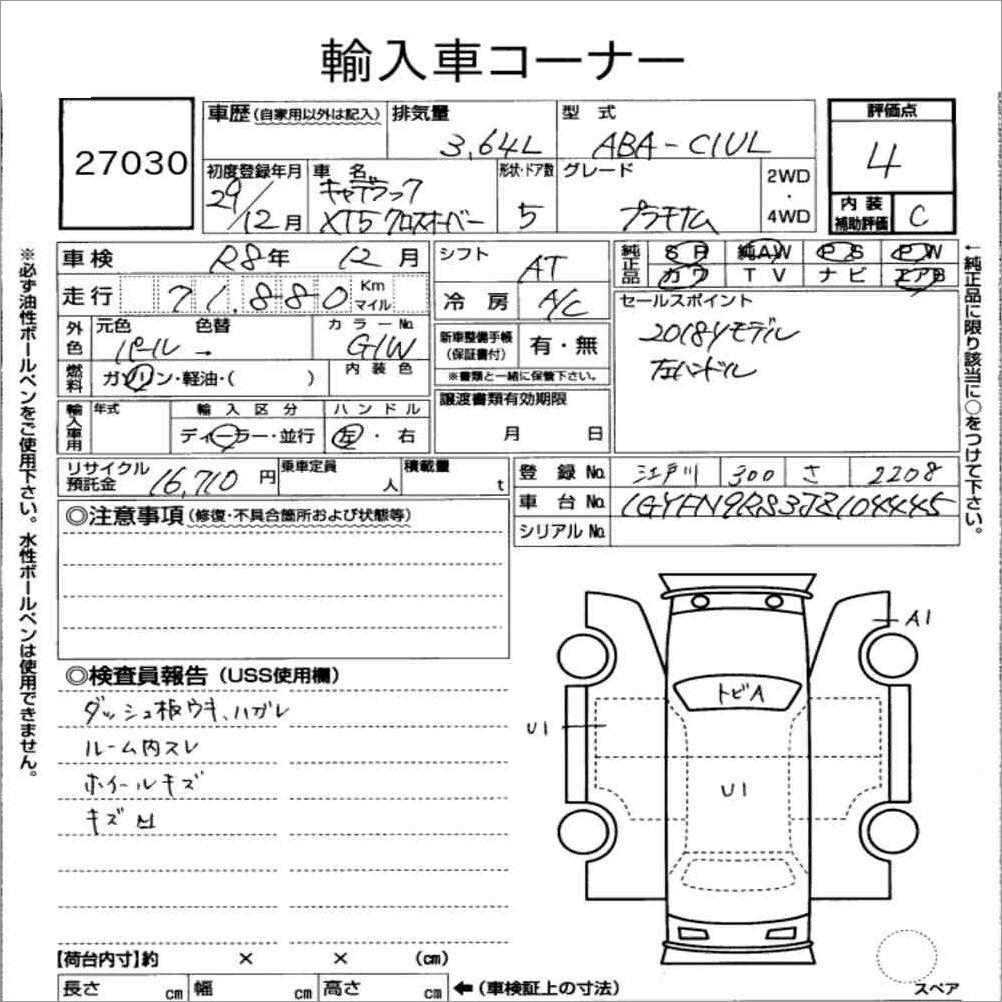 輸入車コーナー
27030
車歴 (自家用以外は記入)
排気量
3.64L
型式
ABA-C1UL
評価点
4
内装補助評価
C
初度登録年月
29/12月
車名
キャデラック
XT5クロスオーバー
形状・ドア数
5
グレード
プラチナム
2WD・4WD
車検
R8年 12月
シフト
AT
純正品
SR 純AW PS PW
カワ TV ナビ エアB
走行
71,880 Km マイル
冷房
A/C
セールスポイント
2018yモデル
左ハンドル
外色
元色 色替
パール →
カラーNo.
G1W
新車整備手帳(保証書付)
有・無
※書類と一緒に保管下さい。
燃料
ガソリン・軽油・( )
内装色
輸入車用
年式
輸入区分
ディーラー・並行
ハンドル
左・右
譲渡書類有効期限
月 日
リサイクル預託金
16,710円
乗車定員
人
積載量
t
登録No.
江戸川 300 さ 2208
車台No.
1GYFN9RS3JZ104445
シリアルNo.
◎注意事項 (修復・不具合箇所および状態等)
◎検査員報告 (USS使用欄)
ダッシュ板ウキ、ハガレ
ルーム内スレ
ホイールキズ
キズ凹
A1
トビA
U1
U1
スペア
【荷台内寸】約 × × (cm)
長さ cm 幅 cm 高さ cm ←(車検証上の寸法)
※必ず油性ボールペンをご使用下さい。水性ボールペンは使用できません。
←純正品に限り該当に○をつけて下さい。